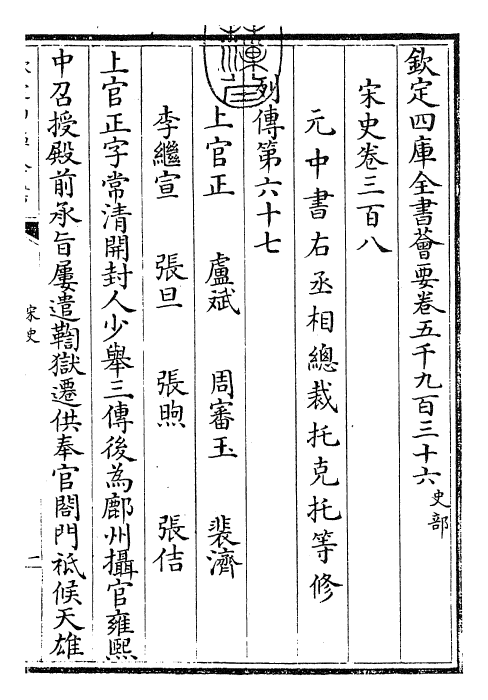 欽定四庫全書薈要卷五千九百三十六史部
宋史卷三百八
元中書右丞相總裁托克托等修
列傳第六十七
上官正 盧斌 周審玉 裴濟
李繼宣 張旦 張煦 張佶
上官正字常清開封人少舉三傳後為鄜州攝官雍熙
中召授殿前承旨屢遣鞫獄遷供奉官閤門祗候天雄
宋史
一